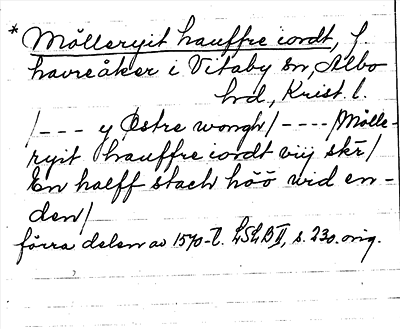 * Mölleryit hauffre iordt, f
havreåker i Vitaby sn, Albo
hd, Krist. l.
/--- y Östre wongh/----/Mölle-
ryit hauffre iordt viij skr/
En halff stach höö wid en-
den/
förra delen av 1570-t. LSLB II, s. 230. orig.